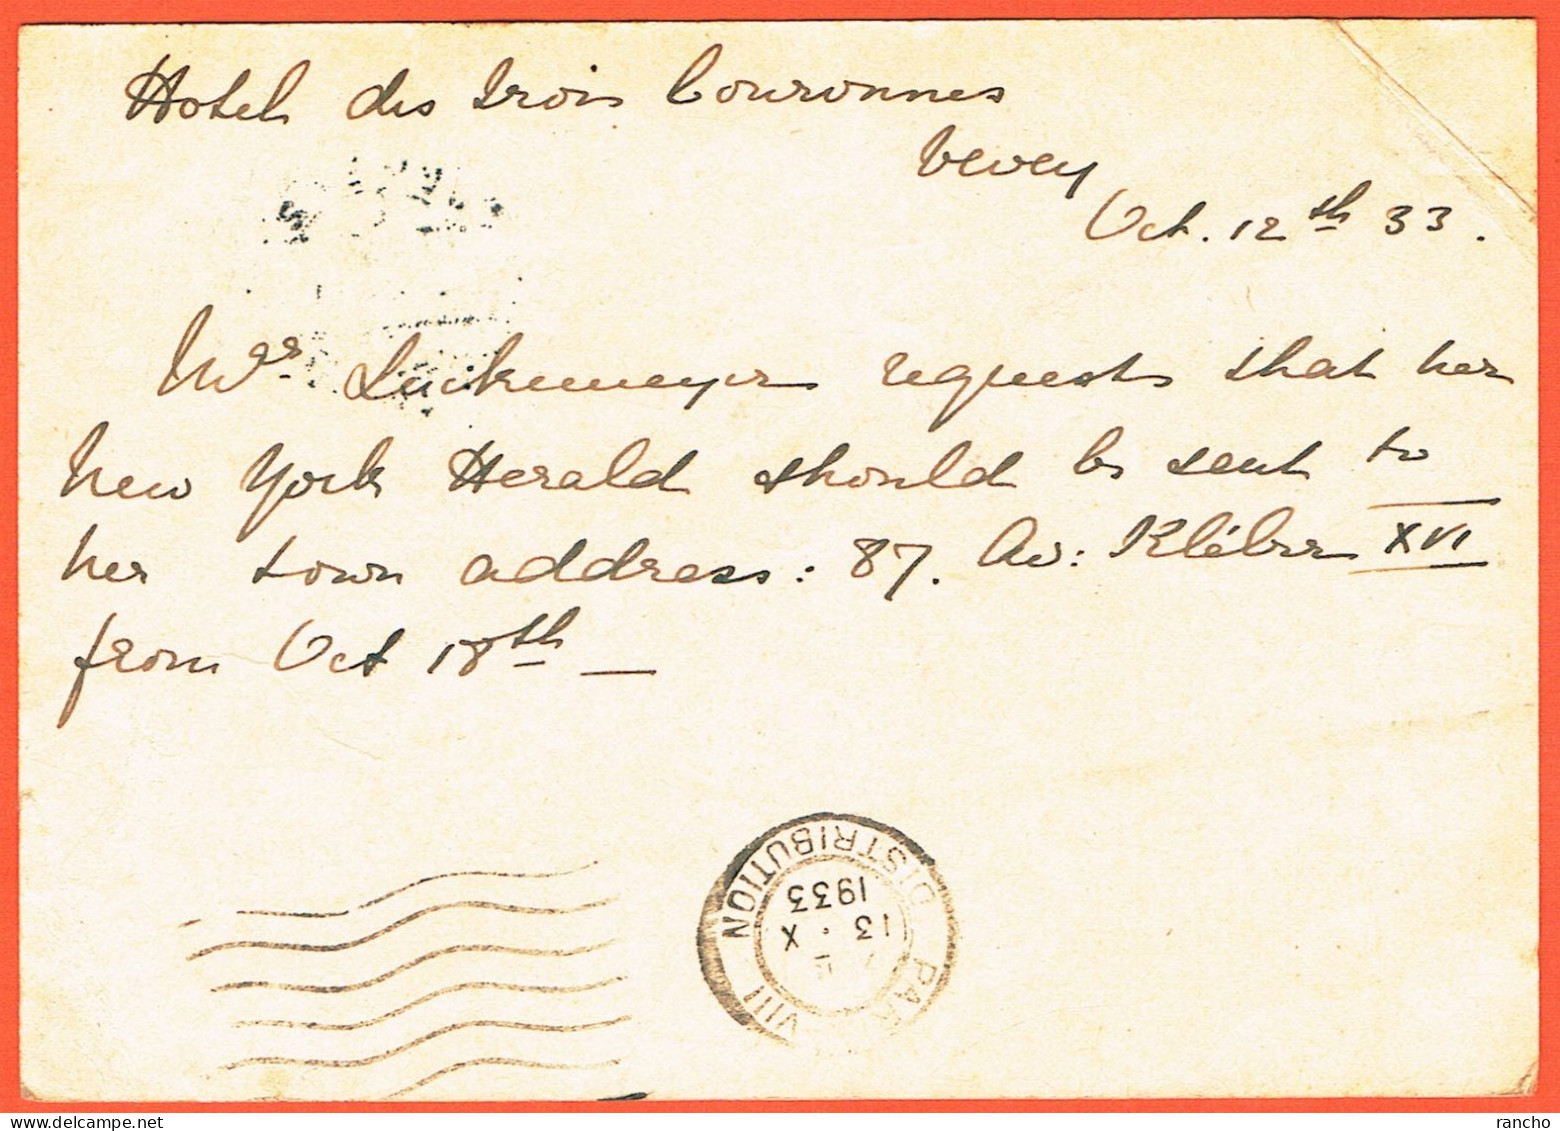 Hotel des trois Couronnes
Vevey
Oct. 12th 33.
Mrs Luckemeyer requests that her
New York Herald should be sent to
her town address: 87. Av: Kléber XVI
from Oct 18th —
PARIS VIII DISTRIBUTION
13 X
1933
rancho